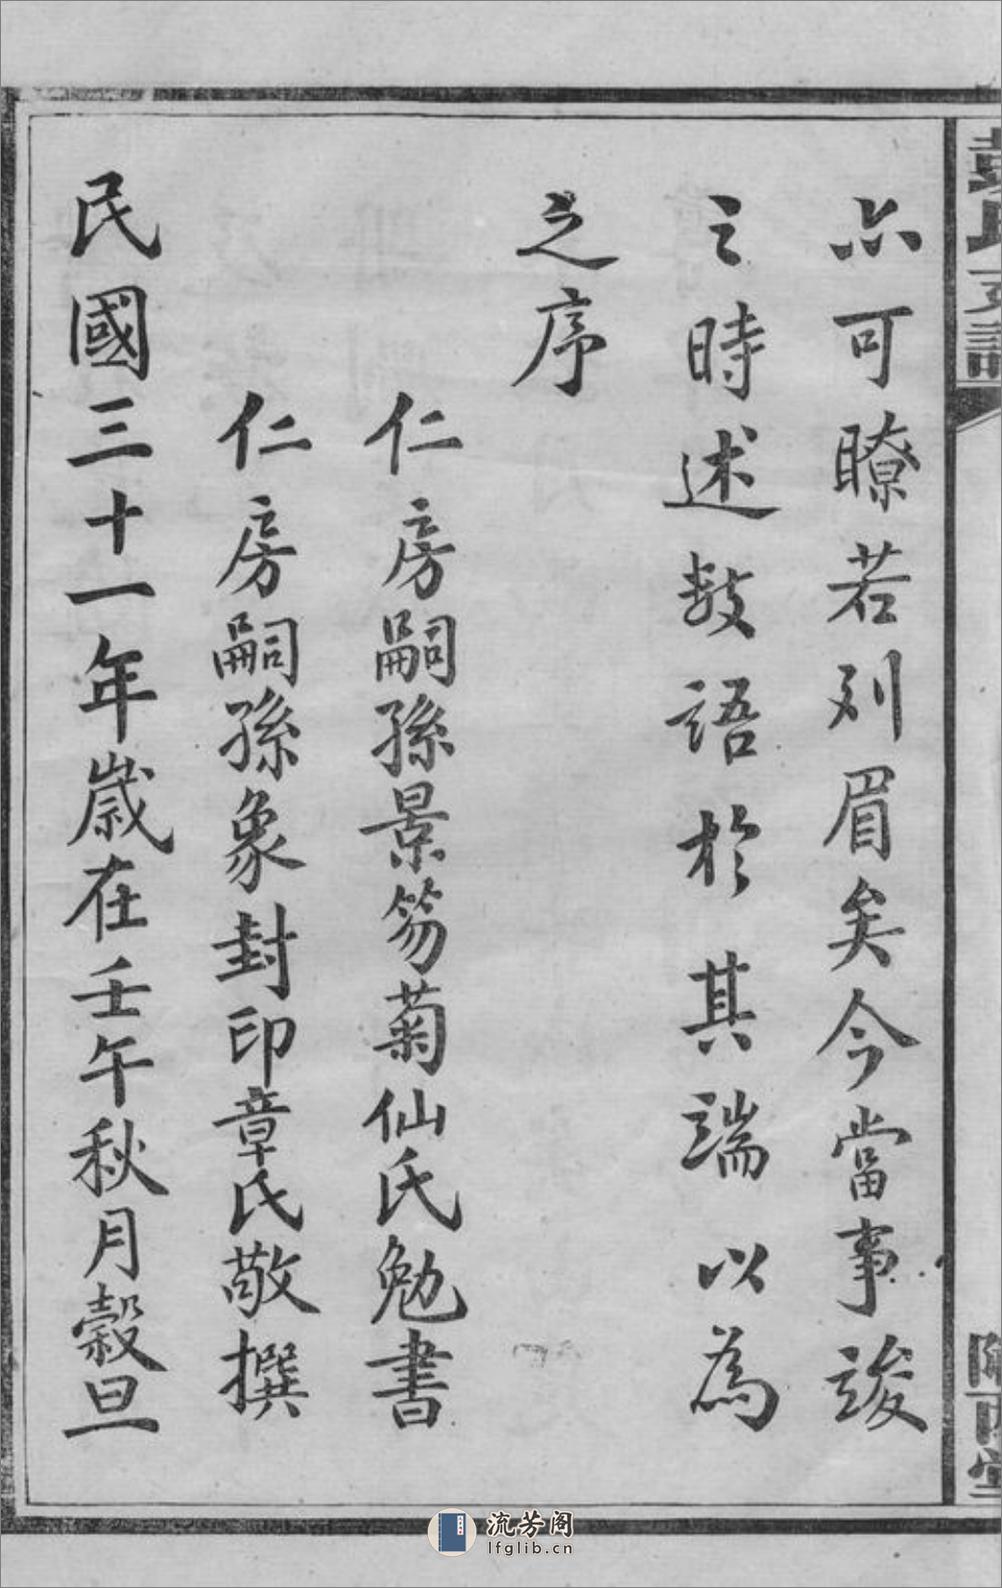 亦可瞭若列眉矣今當事竣
之時述數語於其端以為
之序
仁房嗣孫景笏菊仙氏勉書
仁房嗣孫象封印章氏敬撰
民國三十一年歲在壬午秋月穀旦
氏支譜
隴西堂
流芳阁
lfglib.cn